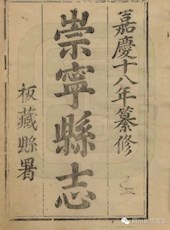 嘉慶十八年纂修
崇寧縣志
板藏縣署